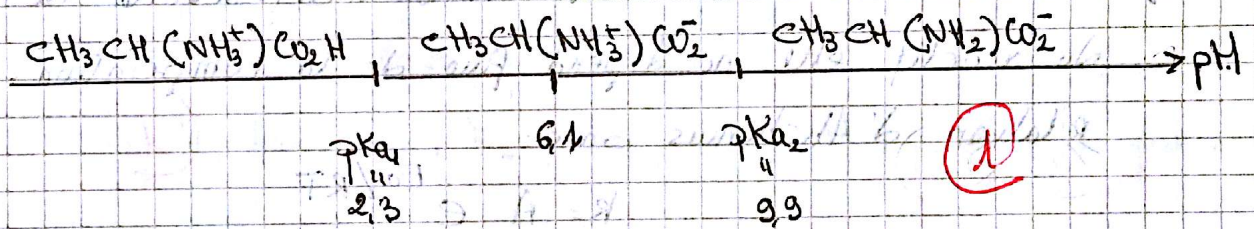 CH₃CH(NH₃⁺)CO₂H CH₃CH(NH₃⁺)CO₂⁻ CH₃CH(NH₂)CO₂⁻ → pH
pKa₁ 6,1 pKa₂ 1
" "
2,3 9,9